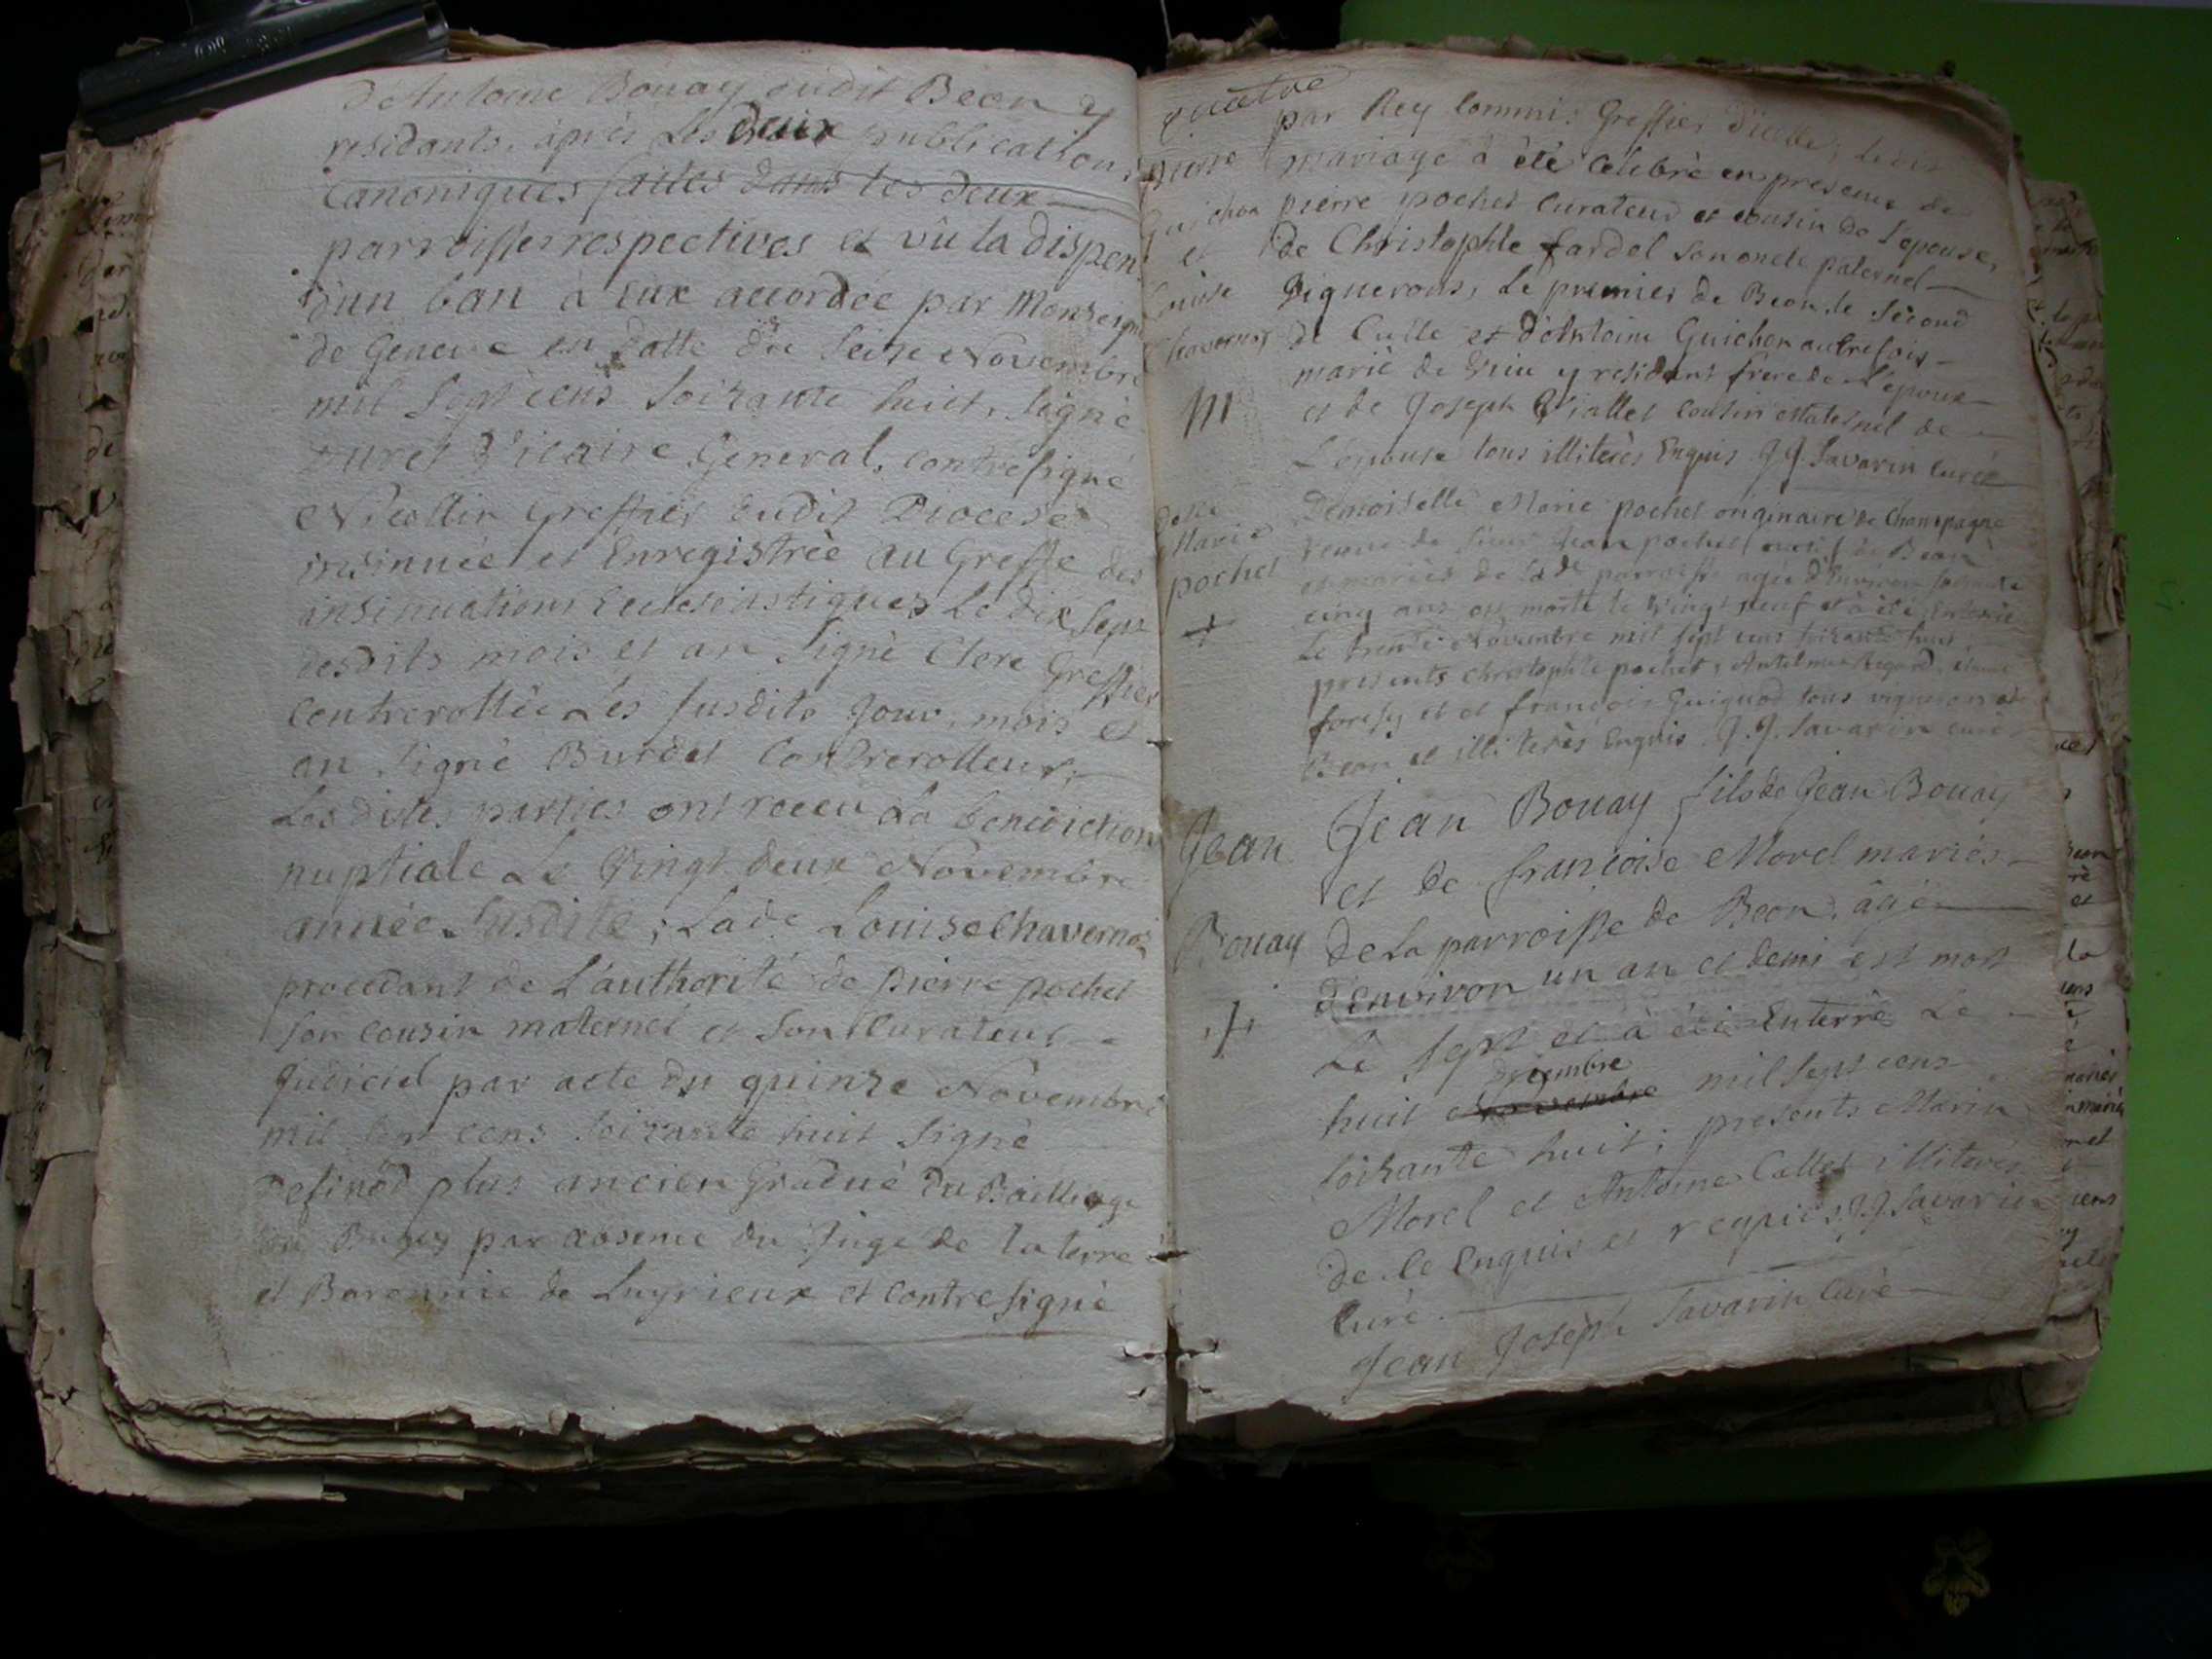 d'Antoine Bouay dudit Beon y
residants, après Les deux publications
Canoniques faittes dans les deux
parroisses respectives et vû la dispen
d'un ban à eux accordée par Monseign
de Geneve en datte du seize Novembre
mil sept cens soixante huit, signé
Vicaire General, contresigné
Nicollin greffier dudit Diocese
insinuée et Enregistrée au Greffe des
insinuations Ecclesiastiques Le dix sept
desdits mois et an signé Clerc Greffier
Controrollée Les susdits Jour, mois et
an signé Burdet Controrolleur,
Les dites parties ont receu La benediction
nuptiale Le Vingt deux Novembre
année susdite; Lade Louise Chavernos
procedant de L'authorité de pierre pochet
son cousin maternel et son Curateur
Judiciel par acte du quinze Novembre
mil sept cens soixante huit signé
plus ancien Gradué du Bailliage
du Bugey par absence du Juge de la terre
et Baronnie de Luyrieux et contresigné
quatre
par Rey Commis Greffier d'icelle, Ledit
mariage à été Célébré en presence de
pierre pochet Curateur et cousin de L'epouse,
de Christophle fardel son oncle paternel
Vignerons, Le premier de Beon, le second
de Culle et d'Antoine Guichon autrefois
marié de y residant frere de L'epoux
et de Joseph Viallet Cousin Maternel de
L'epouse tous illiterés Enquis J.J. Savarin Curé
pierre
Guichon
et
Louise
Chavernos
m
Delle
Marie
pochet
+
Demoiselle Marie pochet originaire de Champagne
veuve de sieur Jean pochet de Beon
et mariés de lade parroisse agée d'Environ soixante
cinq ans est morte le vingt neuf et à été Enterrée
Le trente Novembre mil sept cens soixante huit
presents Christophle pochet, Antelme Regard,
foresy et et françois Guiguod tous vignerons de
Beon et illiterés Enquis J.J. Savarin curé
Jean
Bouay
+
Jean Bouay fils de Jean Bouay
et de françoise Morel mariés
de La parroisse de Beon, âgé
d'environ un an et demi est mort
Le sept et à été Enterré Le
Decembre
huit Novembre mil sept cens
soixante huit; presents Marin
Morel et Antoine Callet illiterés
de ce Enquis et requis J.J. Savarin
Curé
Jean Joseph Savarin Curé